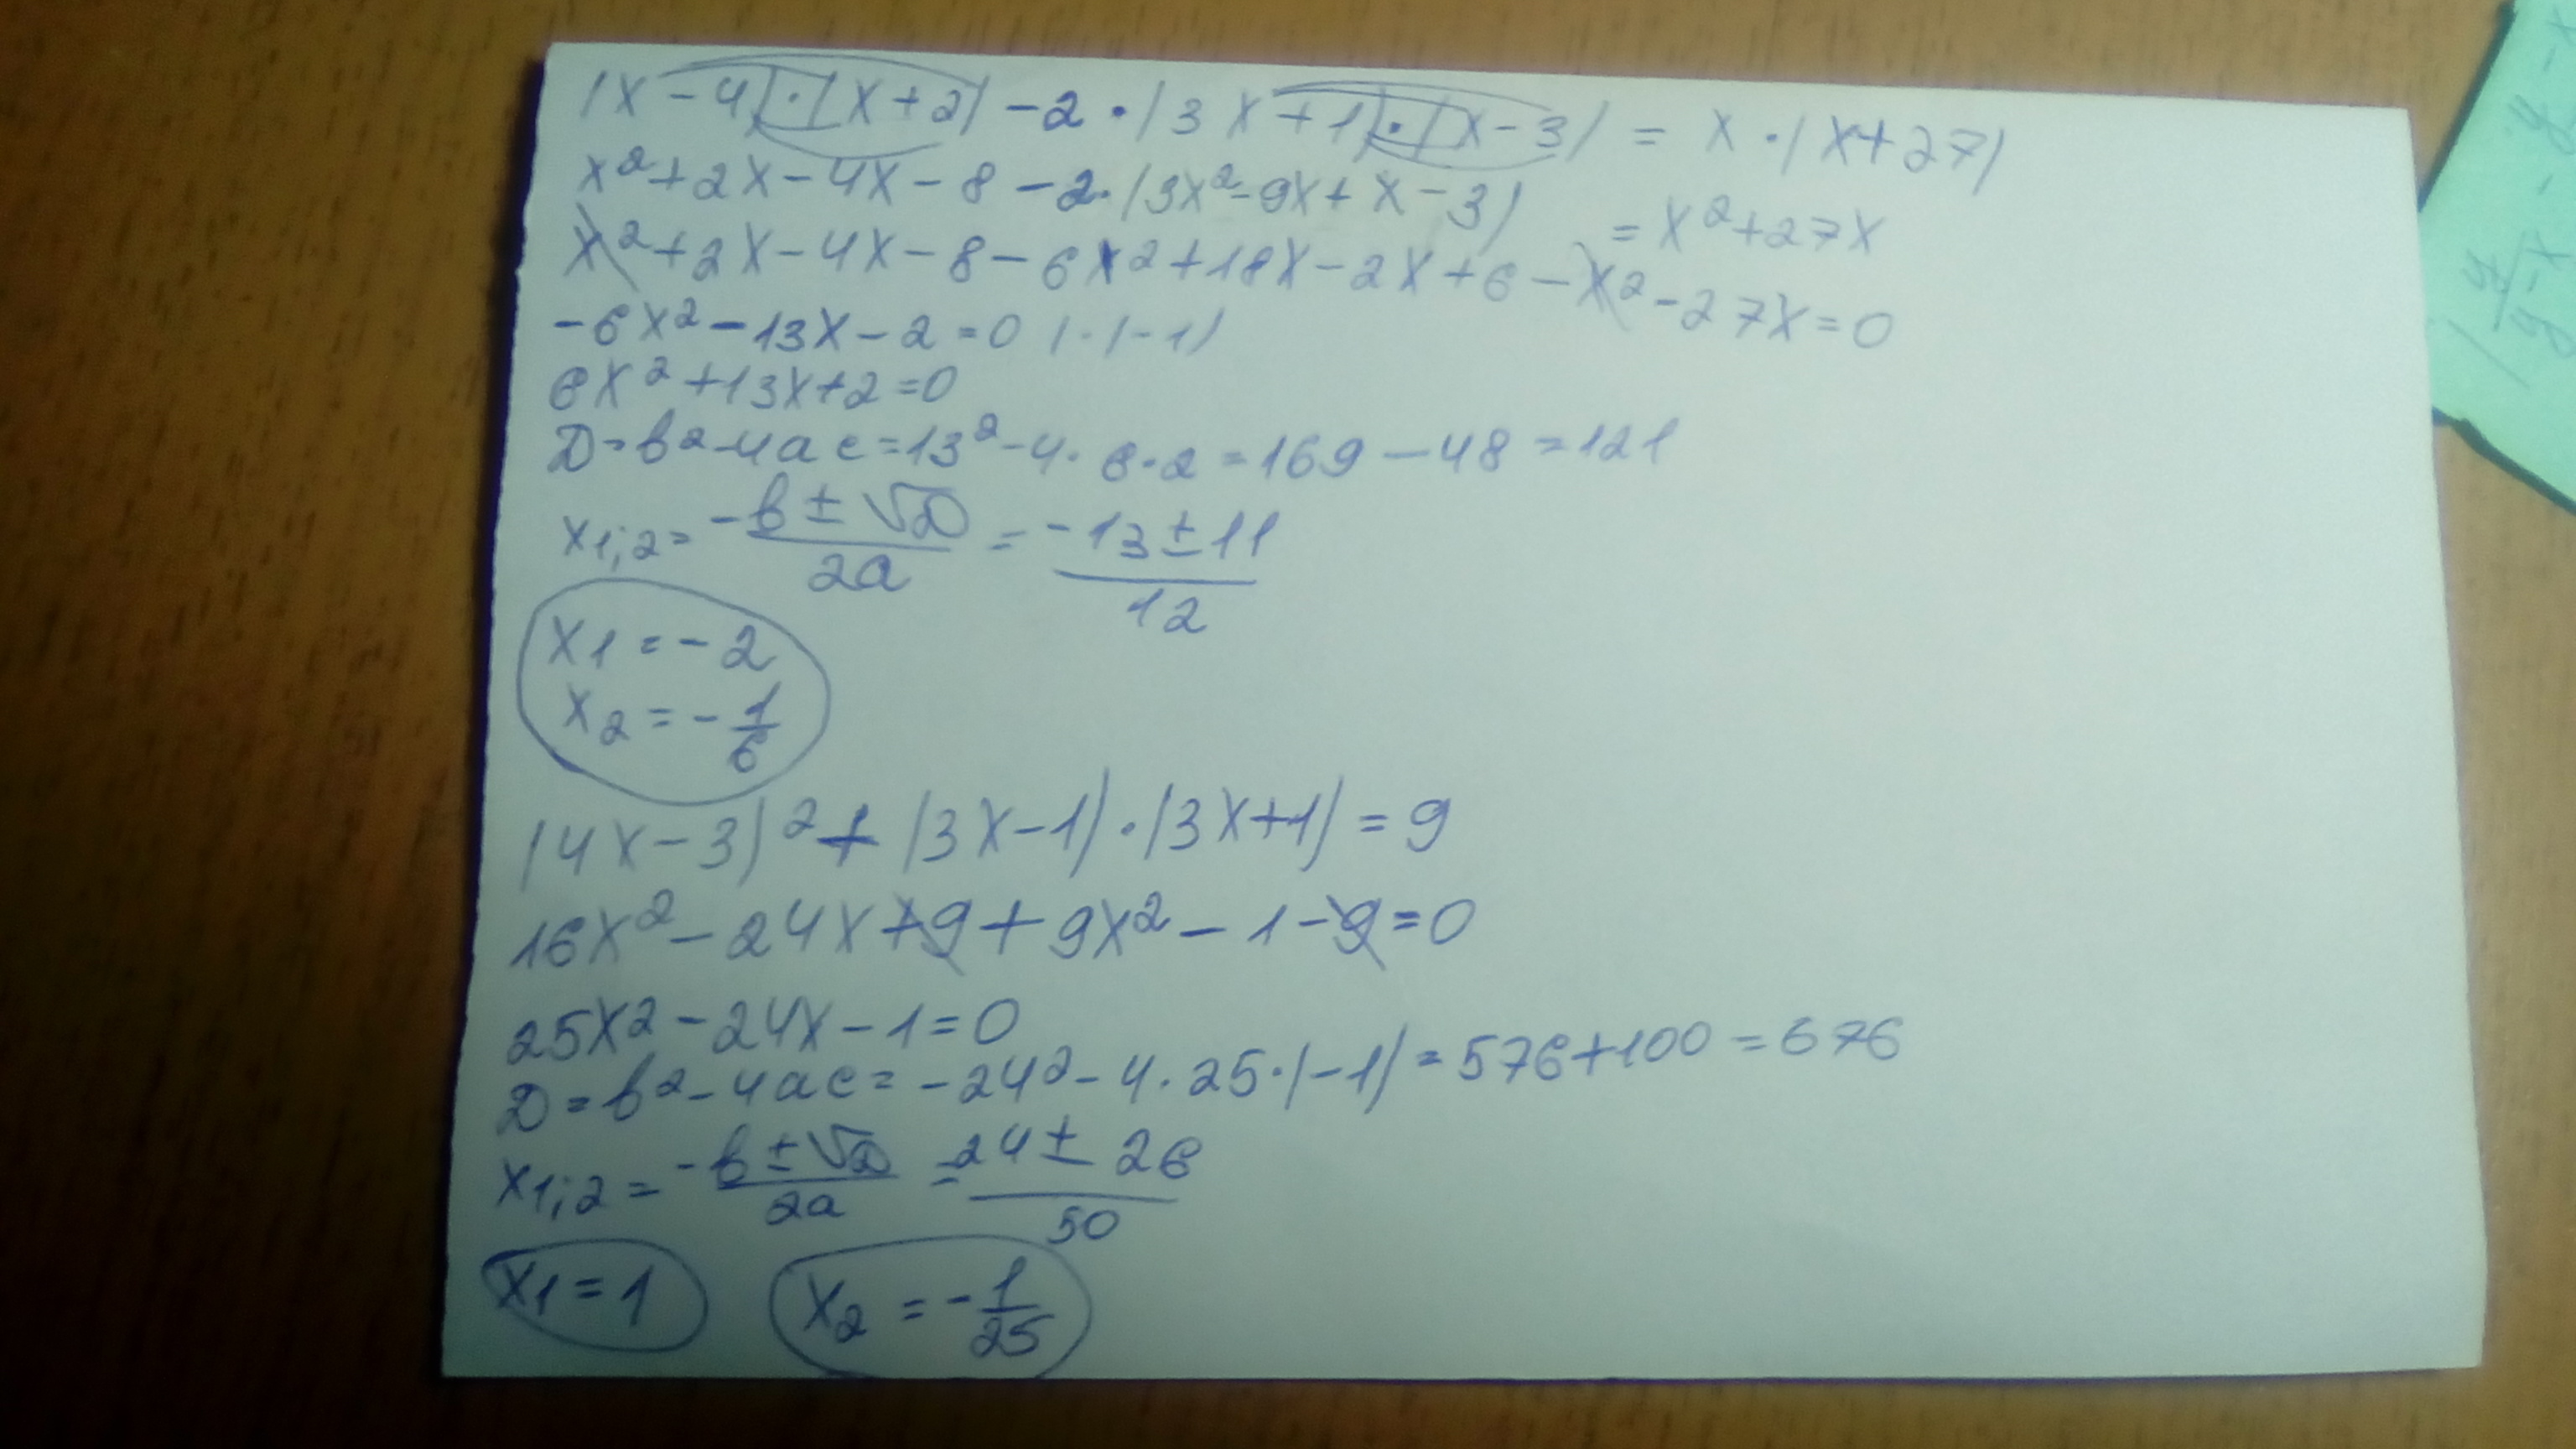 (x-4)·(x+2)-2·(3x+1)·(x-3) = x·(x+27)
x²+2x-4x-8-2·(3x²-9x+x-3) = x²+27x
x²+2x-4x-8-6x²+18x-2x+6-x²-27x=0
-6x²-13x-2=0 |·(-1)
6x²+13x+2=0
D=b²-4ac=13²-4·6·2=169-48=121
x1;2= -b±√D/2a = -13±11/12
x1=-2
x2=-1/6
(4x-3)²+(3x-1)·(3x+1)=9
16x²-24x+9+9x²-1-9=0
25x²-24x-1=0
D=b²-4ac=-24²-4·25·(-1)=576+100=676
x1;2= -b±√D/2a = 24±26/50
x1=1 x2=-1/25